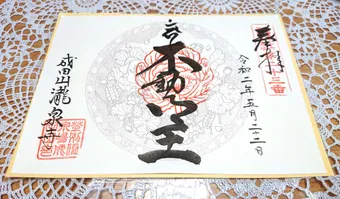 奉拝
令和二年五月二十二日
不動明王
成田山瀧泉寺